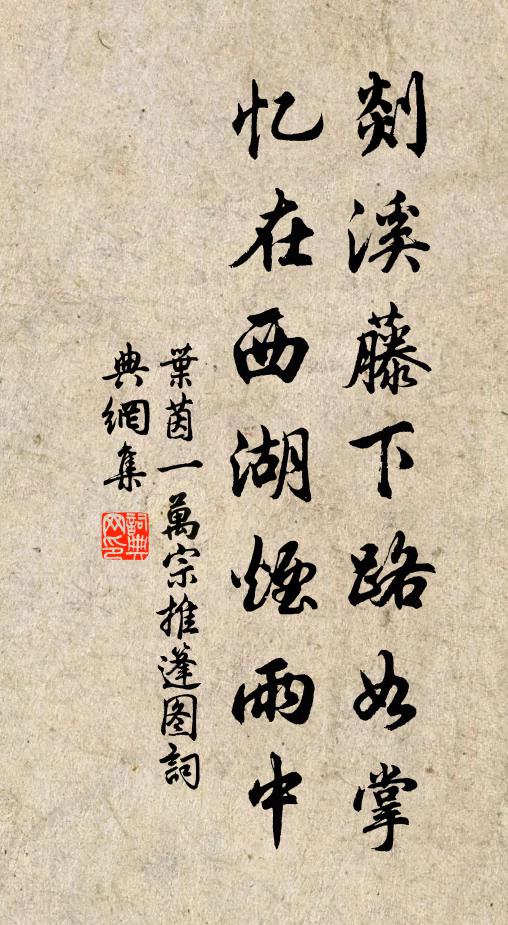 剡溪藤下路如掌
忆在西湖煙雨中
葉茵一萬宗推篷图詞
典網集
詞典
网印